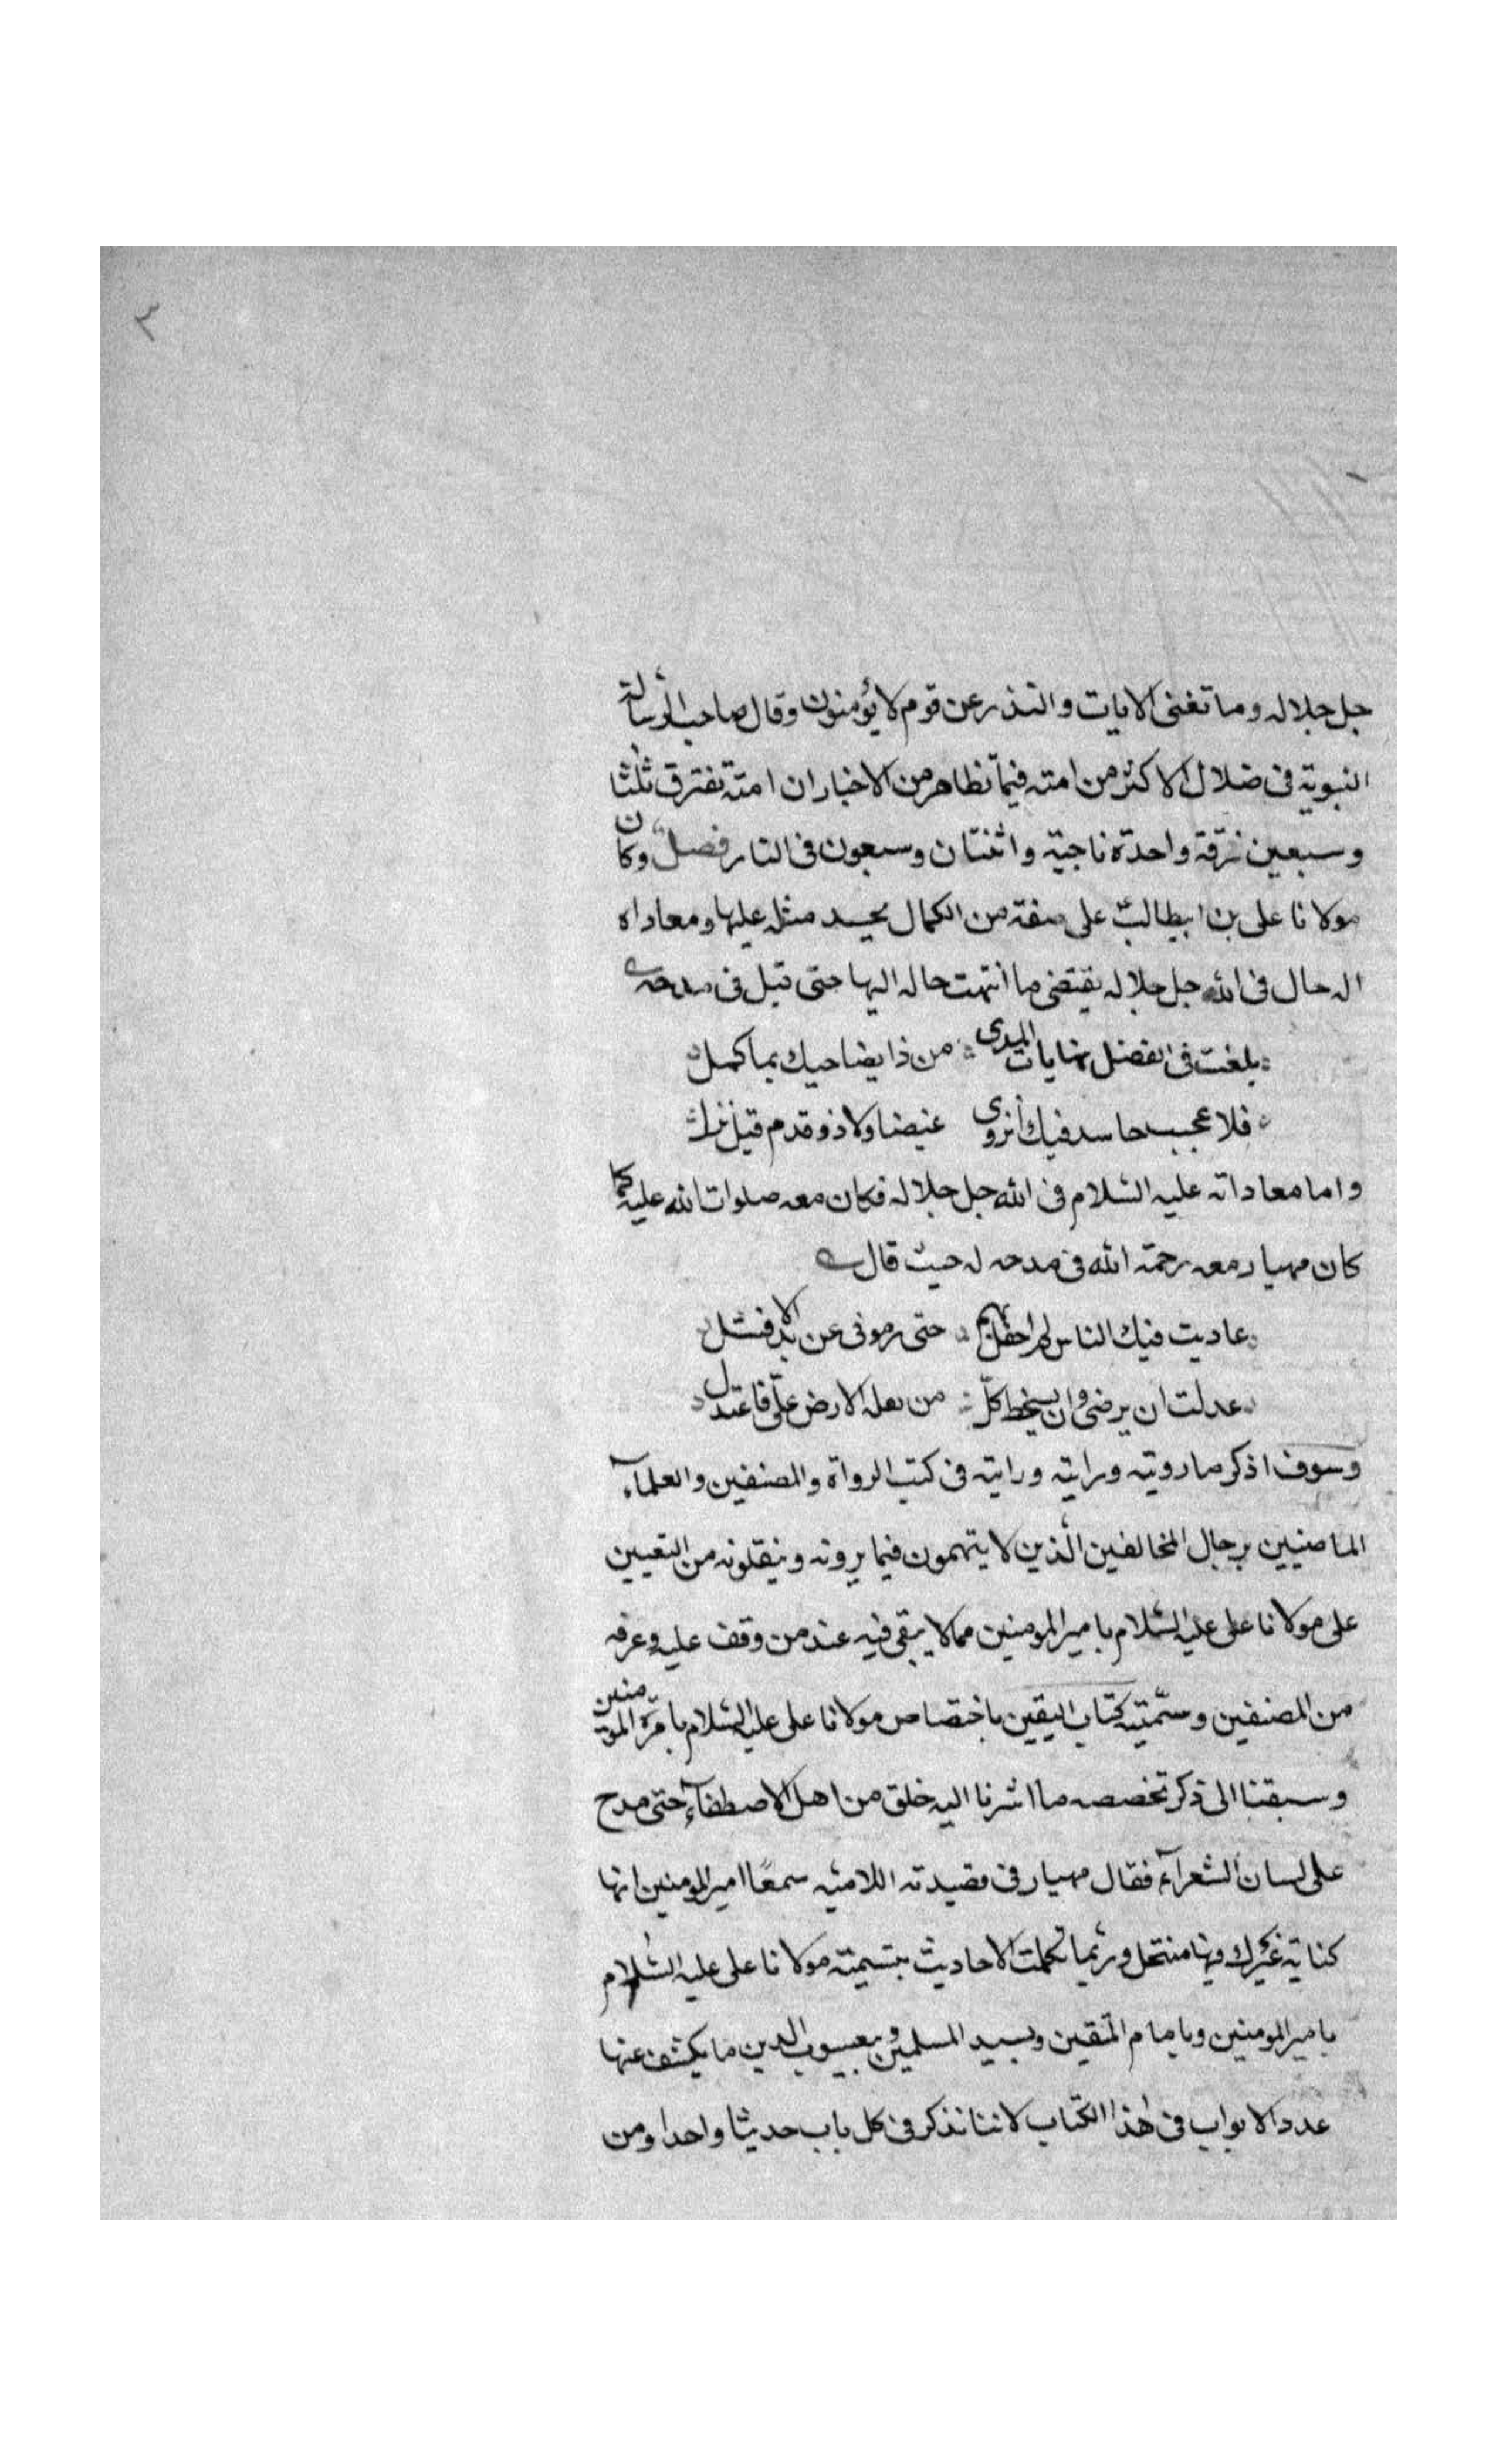 ٣
جل جلاله وما تغنى الايات والنذر عن قوم لا يؤمنون وقال صاحب الرسالة
النبوية فى ضلال الاكثر من امته فيما تظاهر من الاخبار ان امته تفترق ثلثا
وسبعين فرقة واحدة ناجية واثنتان وسبعون فى النار فصل وكان
مولانا على بن ابيطالب على صفة من الكمال يحسد مثله عليها ومعاداه
الرجال فى الله جل جلاله يقتضى ما انتهت حاله اليها حتى قيل فى مدحه
بلغت فى الفضل نهايات المدى من ذا يضاحيك بما كمل
فلا عجيب حاسد فيك انزوى غيضا ولا ذو قدم فيك نزل
واما معاداته عليه السلام فى الله جل جلاله فكان معه صلوات الله عليه كما
كان مهيار معه رحمة الله فى مدحه له حيث قال
عاديت فيك الناس لم احفل بهم حتى رمونى عن يد الا فشل
عدلت ان يرضى وان يسخط كل من الارض على فاعتدل
وسوف اذكر ما رويته ورايته ورايته فى كتب الرواة والمصنفين والعلماء
الماضيين برجال المخالفين الذين لا يتهمون فيما يرونه وينقلونه من التعيين
على مولانا على عليه السلام بامير المومنين مما لا يبقى فيه عند من وقف عليه وعرفه
من المصنفين وسميته كتاب اليقين باختصاص مولانا على عليه السلام بامرة المومنين
وسبقنا الى ذكر تخصصه ما اشرنا اليه خلق من اهل الاصطفاء حتى مدح
على لسان الشعراء فقال مهيار فى قصيدته اللامية سمعًا امير المومنين انها
كناية غيرك فيها منتحل وربما تكملت الاحاديث بتسمية مولانا على عليه السلام
بامير المومنين وبامام المتقين وبسيد المسلمين وبيعسوب الدين ما يكشف عنها
عدد الابواب فى هذا الكتاب لاننا نذكر فى كل باب حديثا واحدا ومن